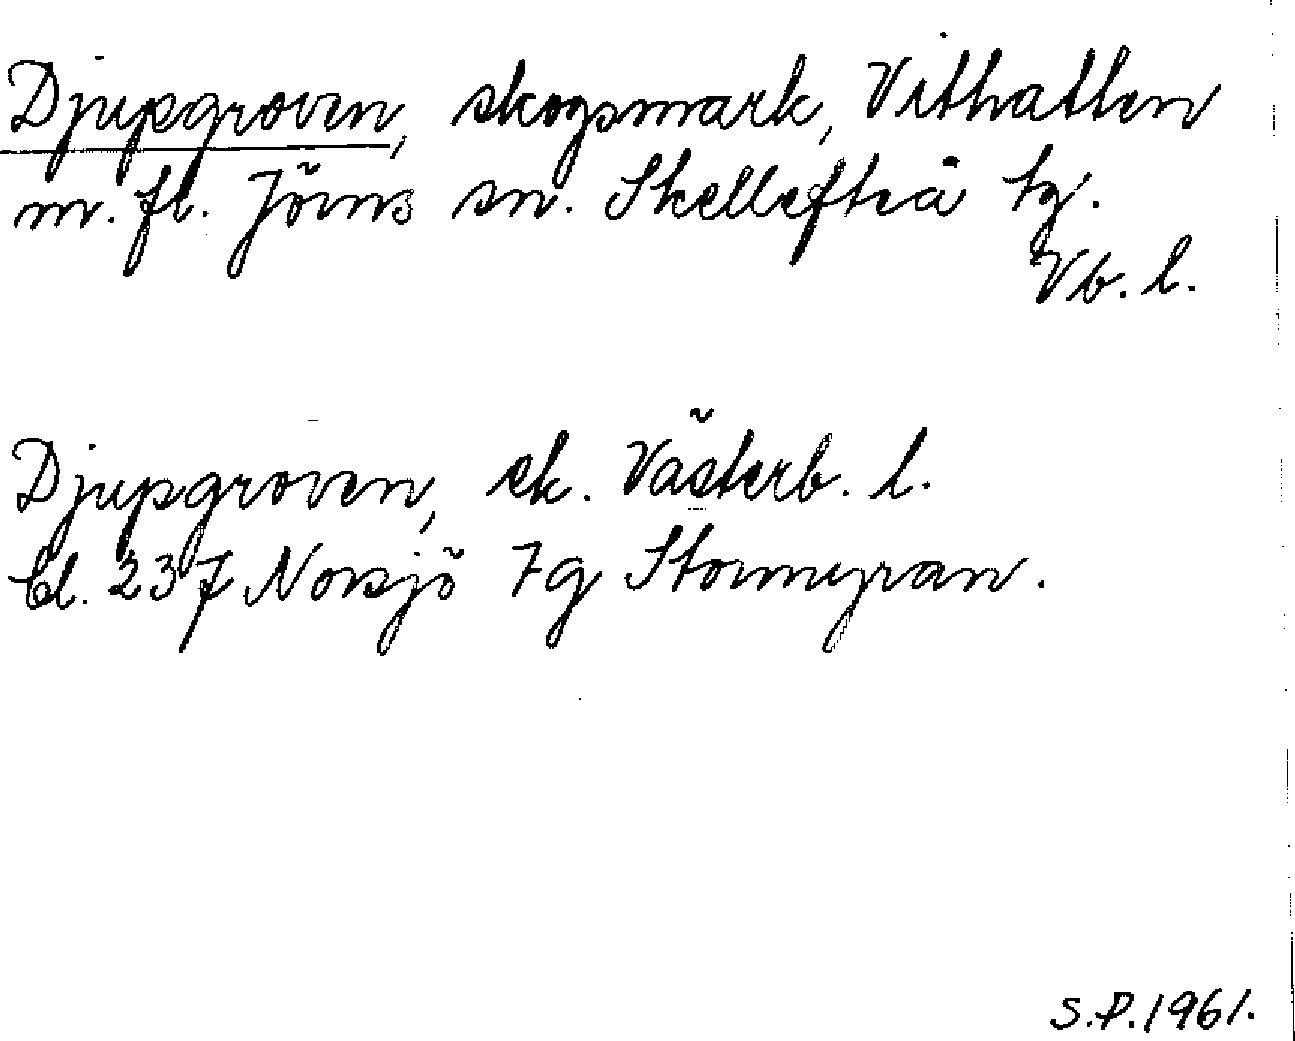 Djupgroven, skogsmark, Vithatten
m.fl. Jörns sn. Skellefteå tg.
Vb. l.
Djupgroven, sk. Västerb. l.
bl. 237 Norsjö 7g Stormyran.
S.P. 1961.